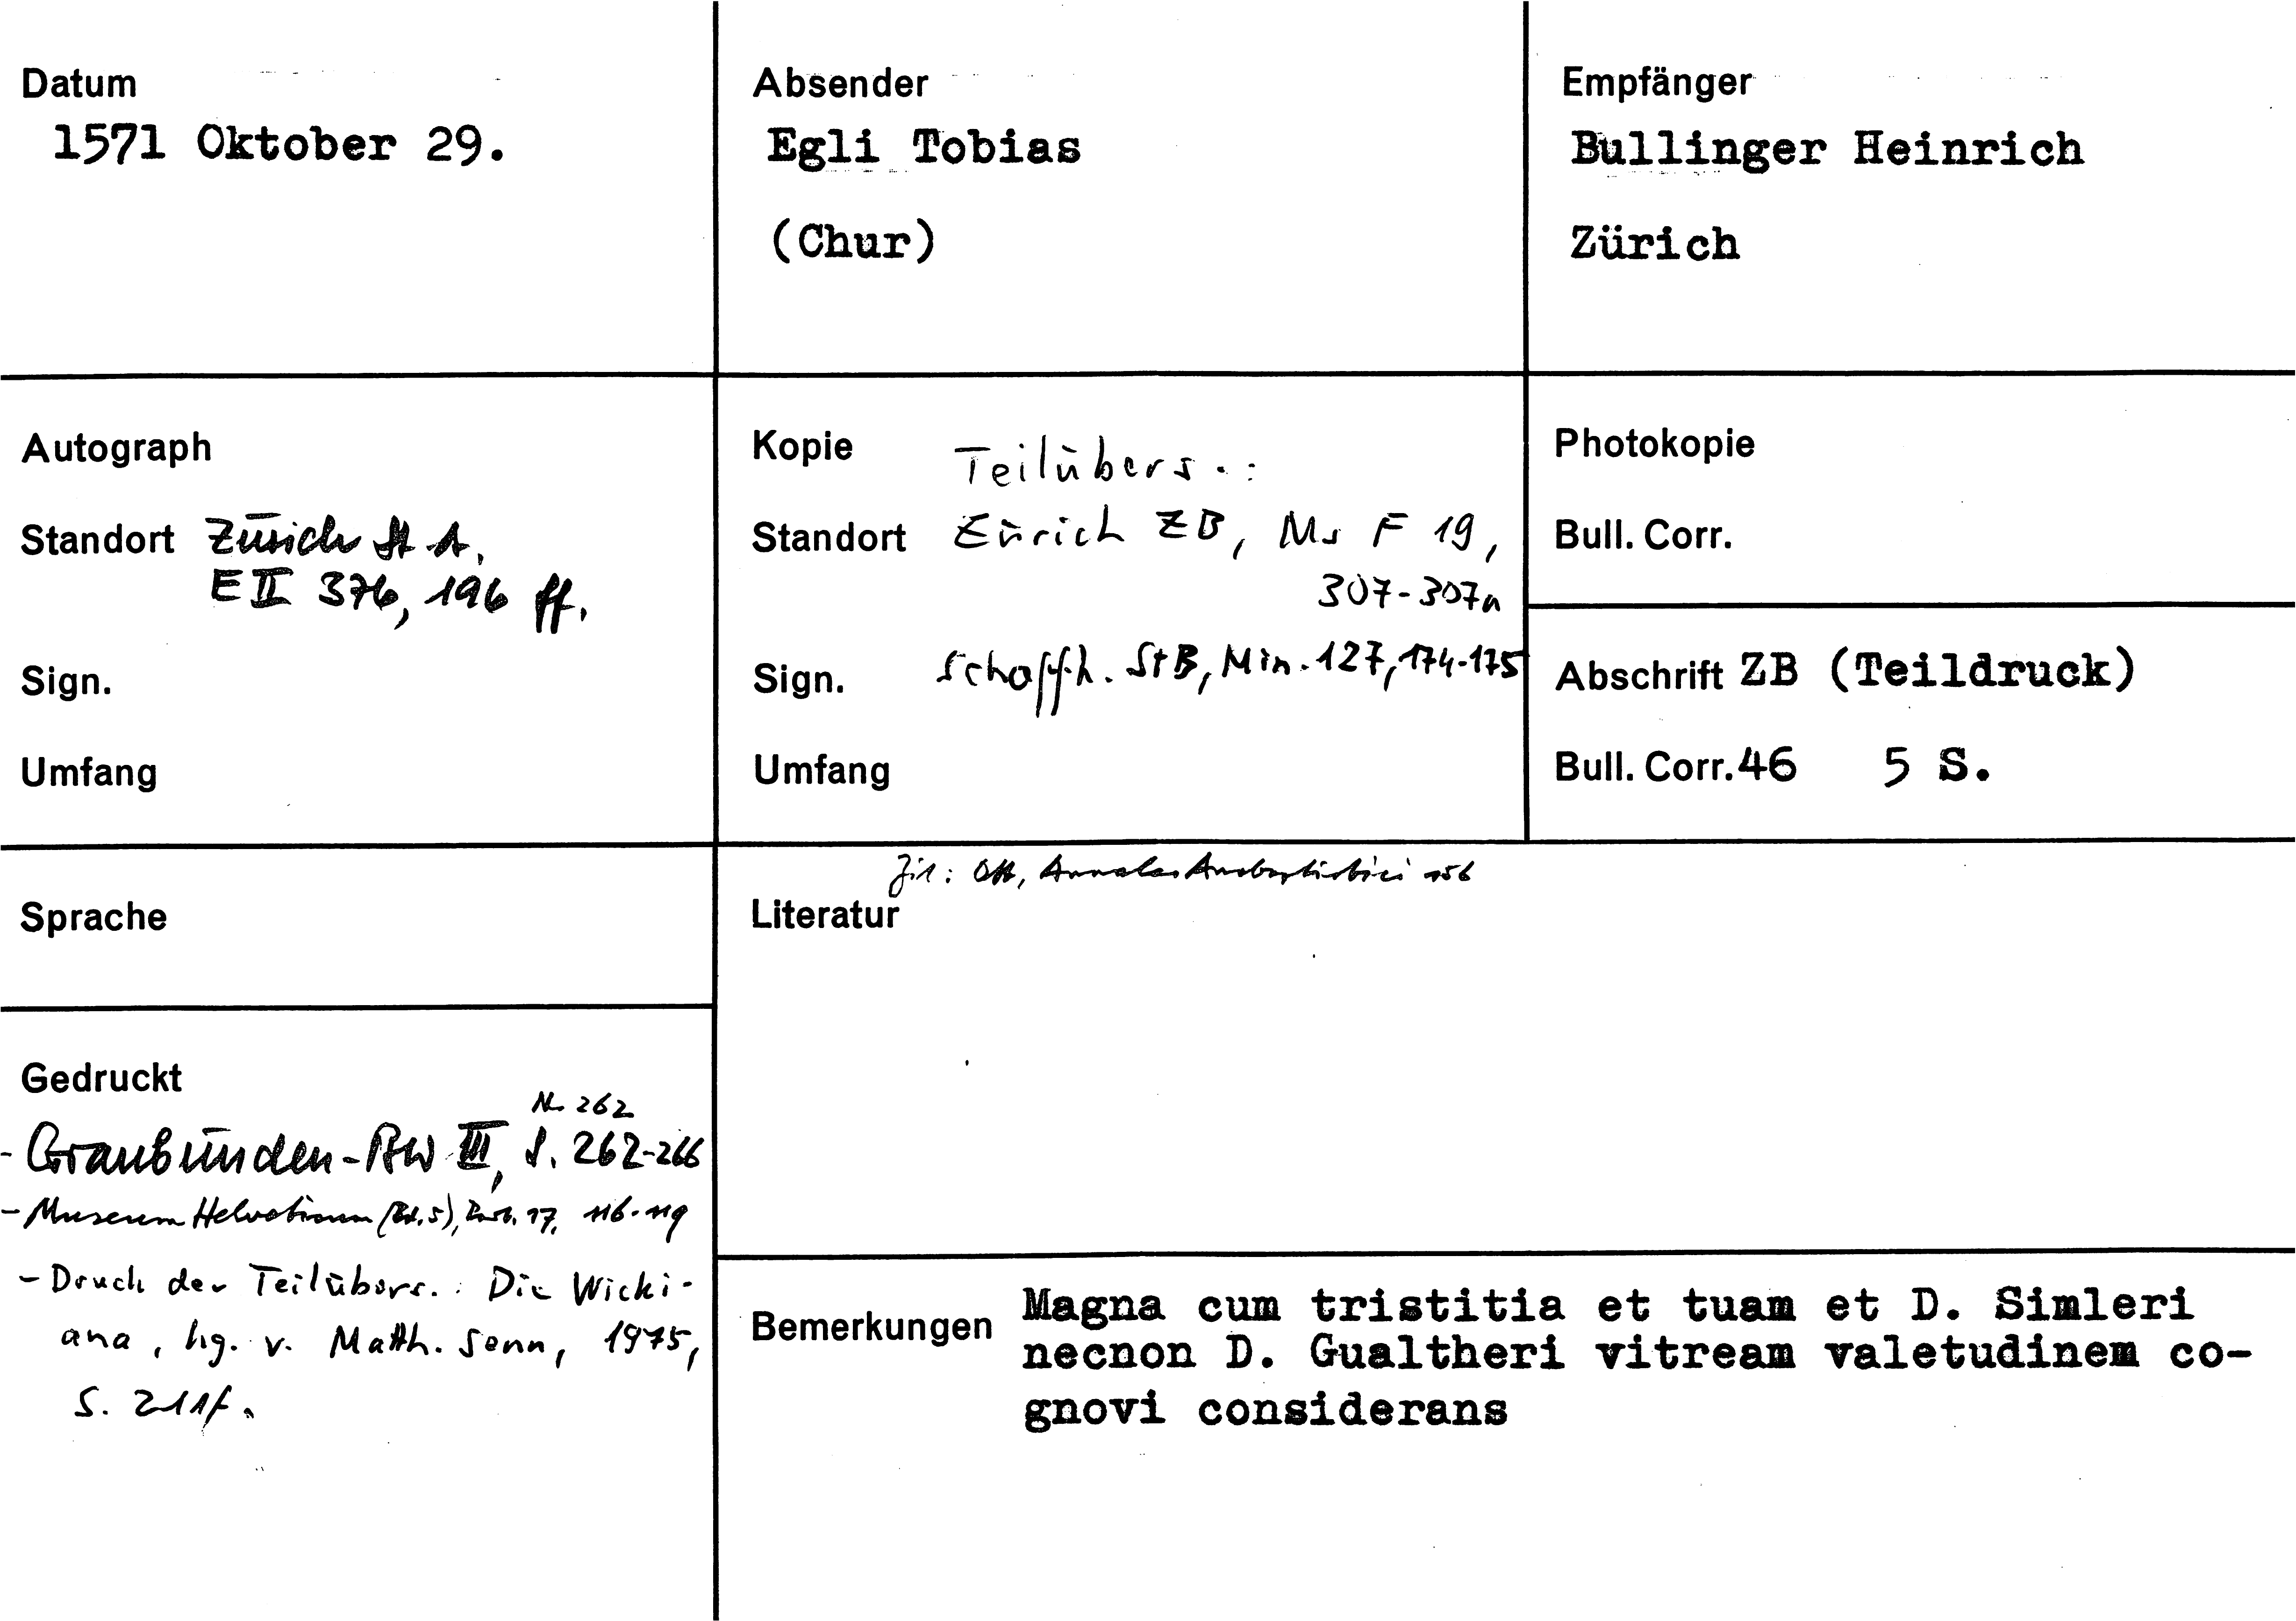 Datum
1571 Oktober 29.
Absender
Egli Tobias
(Chur)
Empfänger
Bullinger Heinrich
Zürich
Autograph
Standort Zürich St A.
E II 376, 196 ff.
Sign.
Umfang
Kopie Teilübers.:
Standort Zürich ZB, Ms F 19,
307-307a
Sign. Schaffh. StB, Min. 127, 174-175
Umfang
Photokopie
Bull. Corr.
Abschrift ZB (Teildruck)
Bull. Corr. 46 5 S.
Sprache
Zit: Ott, Annales Anabaptistici 156
Literatur
Gedruckt
Nr. 262
- Graubünden-BW III, S. 262-266
- Museum Helveticum (Bd. 5), 17, 116-119
- Druck der Teilübers.: Die Wicki-
ana, hg. v. Matth. Senn, 1975,
S. 211f.
Bemerkungen Magna cum tristitia et tuam et D. Simleri
necnon D. Gualtheri vitream valetudinem co-
gnovi considerans